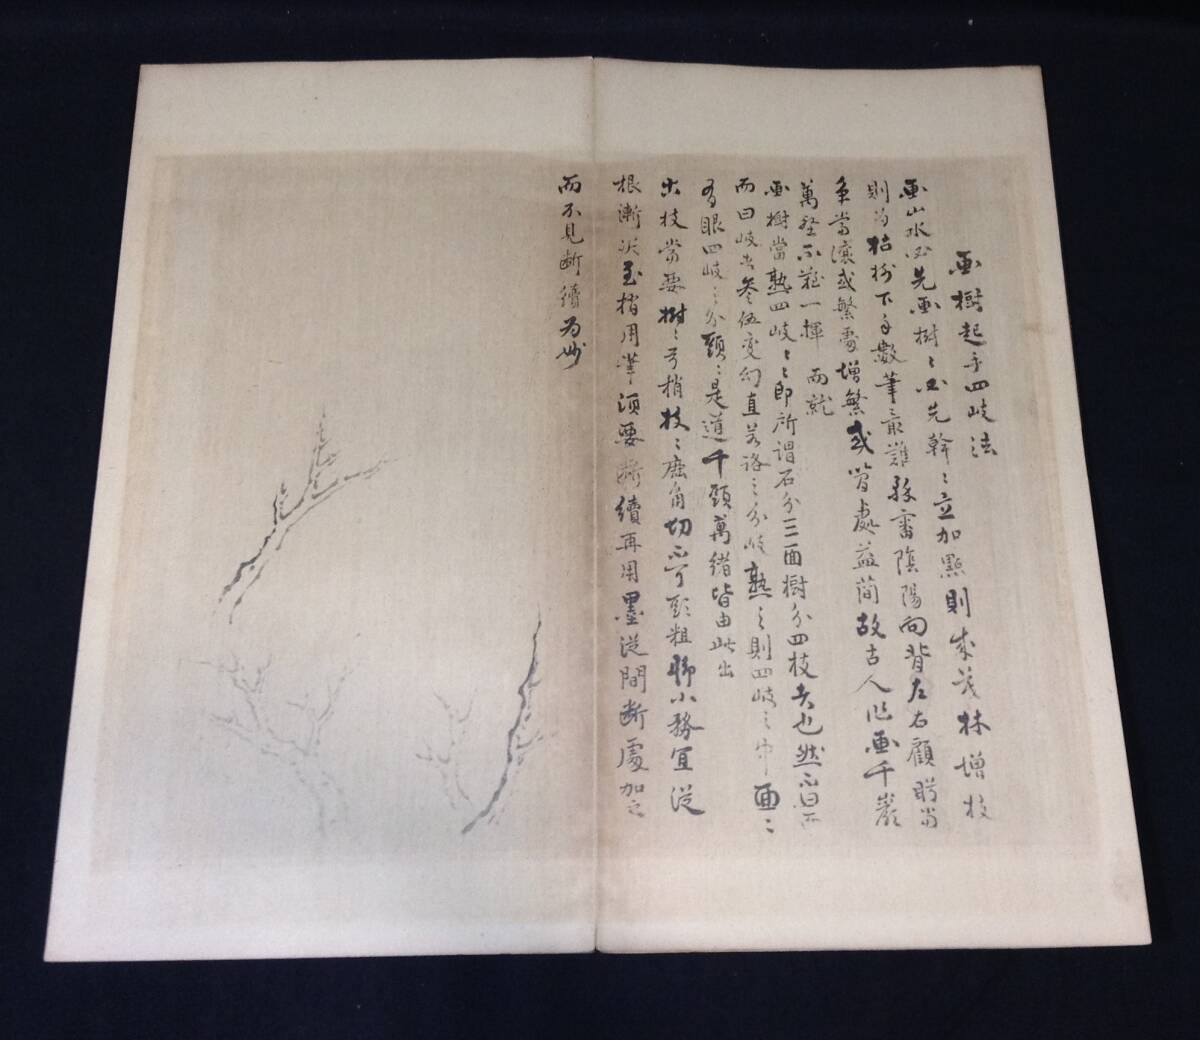 画樹起手四歧法
画山水必先画樹〻必先幹〻立加點則成茂林增枝
則為枯樹下手數筆最難務審陰陽向背左右顧盼當
爭當讓或繁處增繁或簡處益簡故古人作画千巖
萬壑不難一揮而就
画樹當熟四歧〻〻即所謂石分三面樹分四枝者也然不曰
而曰歧者參伍變幻直若路之分歧熟之則四歧之中面〻
有眼四歧之分頭〻是道千頭萬緒皆由此出
出枝當要樹〻弓梢枝〻鹿角切不可頭粗腳小務宜從
根漸淡至梢用筆須要斷續再用墨從間斷處加之
而不見斷續為妙